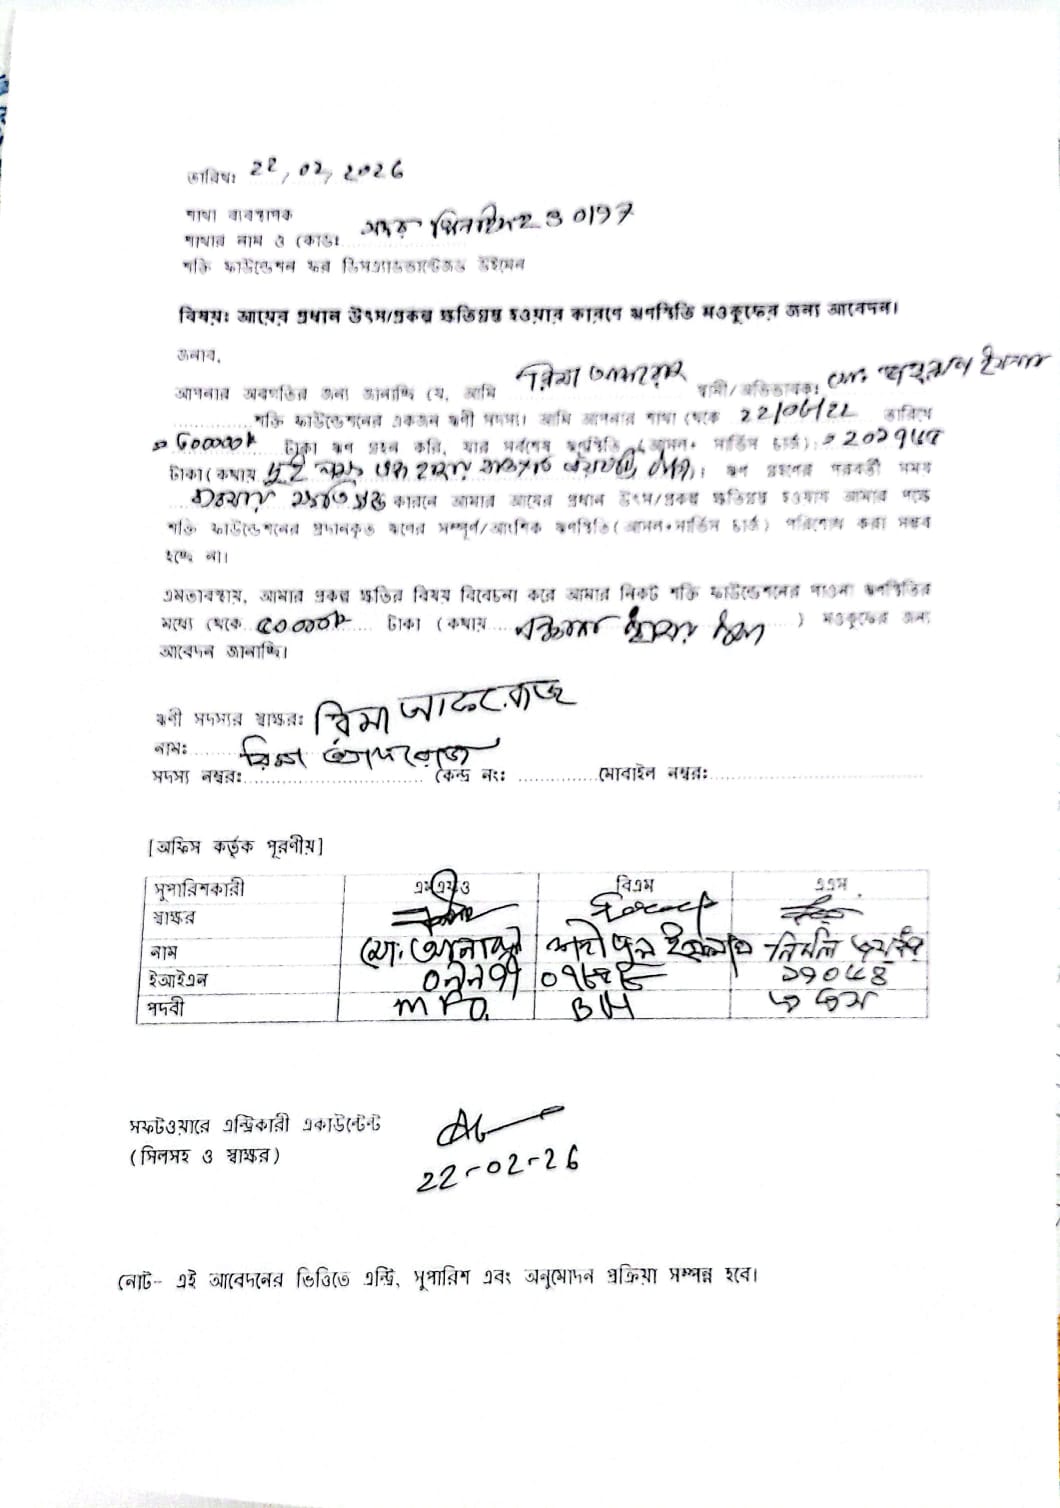 তারিখঃ 22/02/2026
শাখা ব্যবস্থাপক
শাখার নাম ও কোডঃ সদর ঝিনাইদহ 0197
শক্তি ফাউন্ডেশন ফর ডিসএ্যাডভান্টেজড উইমেন
বিষয়ঃ আয়ের প্রধান উৎস/প্রকল্প ক্ষতিগ্রস্থ হওয়ার কারণে ঋণস্থিতি মওকুফের জন্য আবেদন।
জনাব,
আপনার অবগতির জন্য জানাচ্ছি যে, আমি রিমা আফরোজ স্বামী/অভিভাবকঃ মোঃ ইসলাম
শক্তি ফাউন্ডেশনের একজন ঋণী সদস্য। আমি আপনার শাখা থেকে 22/06/22 তারিখে
টাকা ঋণ গ্রহন করি, যার সর্বশেষ ঋণস্থিতি (আসল+ সার্ভিস চার্জ)
টাকা(কথায় দুই লক্ষ এক হাজার )। ঋণ গ্রহণের পরবর্তী সময়
ব্যবসায় ক্ষতিগ্রস্ত কারনে আমার আয়ের প্রধান উৎস/প্রকল্প ক্ষতিগ্রস্থ হওয়ায় আমার পক্ষে
শক্তি ফাউন্ডেশনের প্রদানকৃত ঋণের সম্পূর্ণ/আংশিক ঋণস্থিতি(আসল+সার্ভিস চার্জ) পরিশোধ করা সম্ভব
হচ্ছে না।
এমতাবস্থায়, আমার প্রকল্প ক্ষতির বিষয় বিবেচনা করে আমার নিকট শক্তি ফাউন্ডেশনের পাওনা ঋণস্থিতির
মধ্যে থেকে টাকা (কথায় হাজার ) মওকুফের জন্য
আবেদন জানাচ্ছি।
ঋণী সদস্যর স্বাক্ষরঃ রিমা আফরোজ
নামঃ রিমা আফরোজ
সদস্য নম্বরঃ কেন্দ্র নংঃ মোবাইল নম্বরঃ
[অফিস কর্তৃক পূরণীয়]
সুপারিশকারী এমএফও বিএম এএম
স্বাক্ষর
নাম মোঃ ইসলাম নির্মল
ইআইএন
পদবী MFO. BM
সফটওয়ারে এন্ট্রিকারী একাউন্টেন্ট
(সিলসহ ও স্বাক্ষর) 22-02-26
নোট- এই আবেদনের ভিত্তিতে এন্ট্রি, সুপারিশ এবং অনুমোদন প্রক্রিয়া সম্পন্ন হবে।